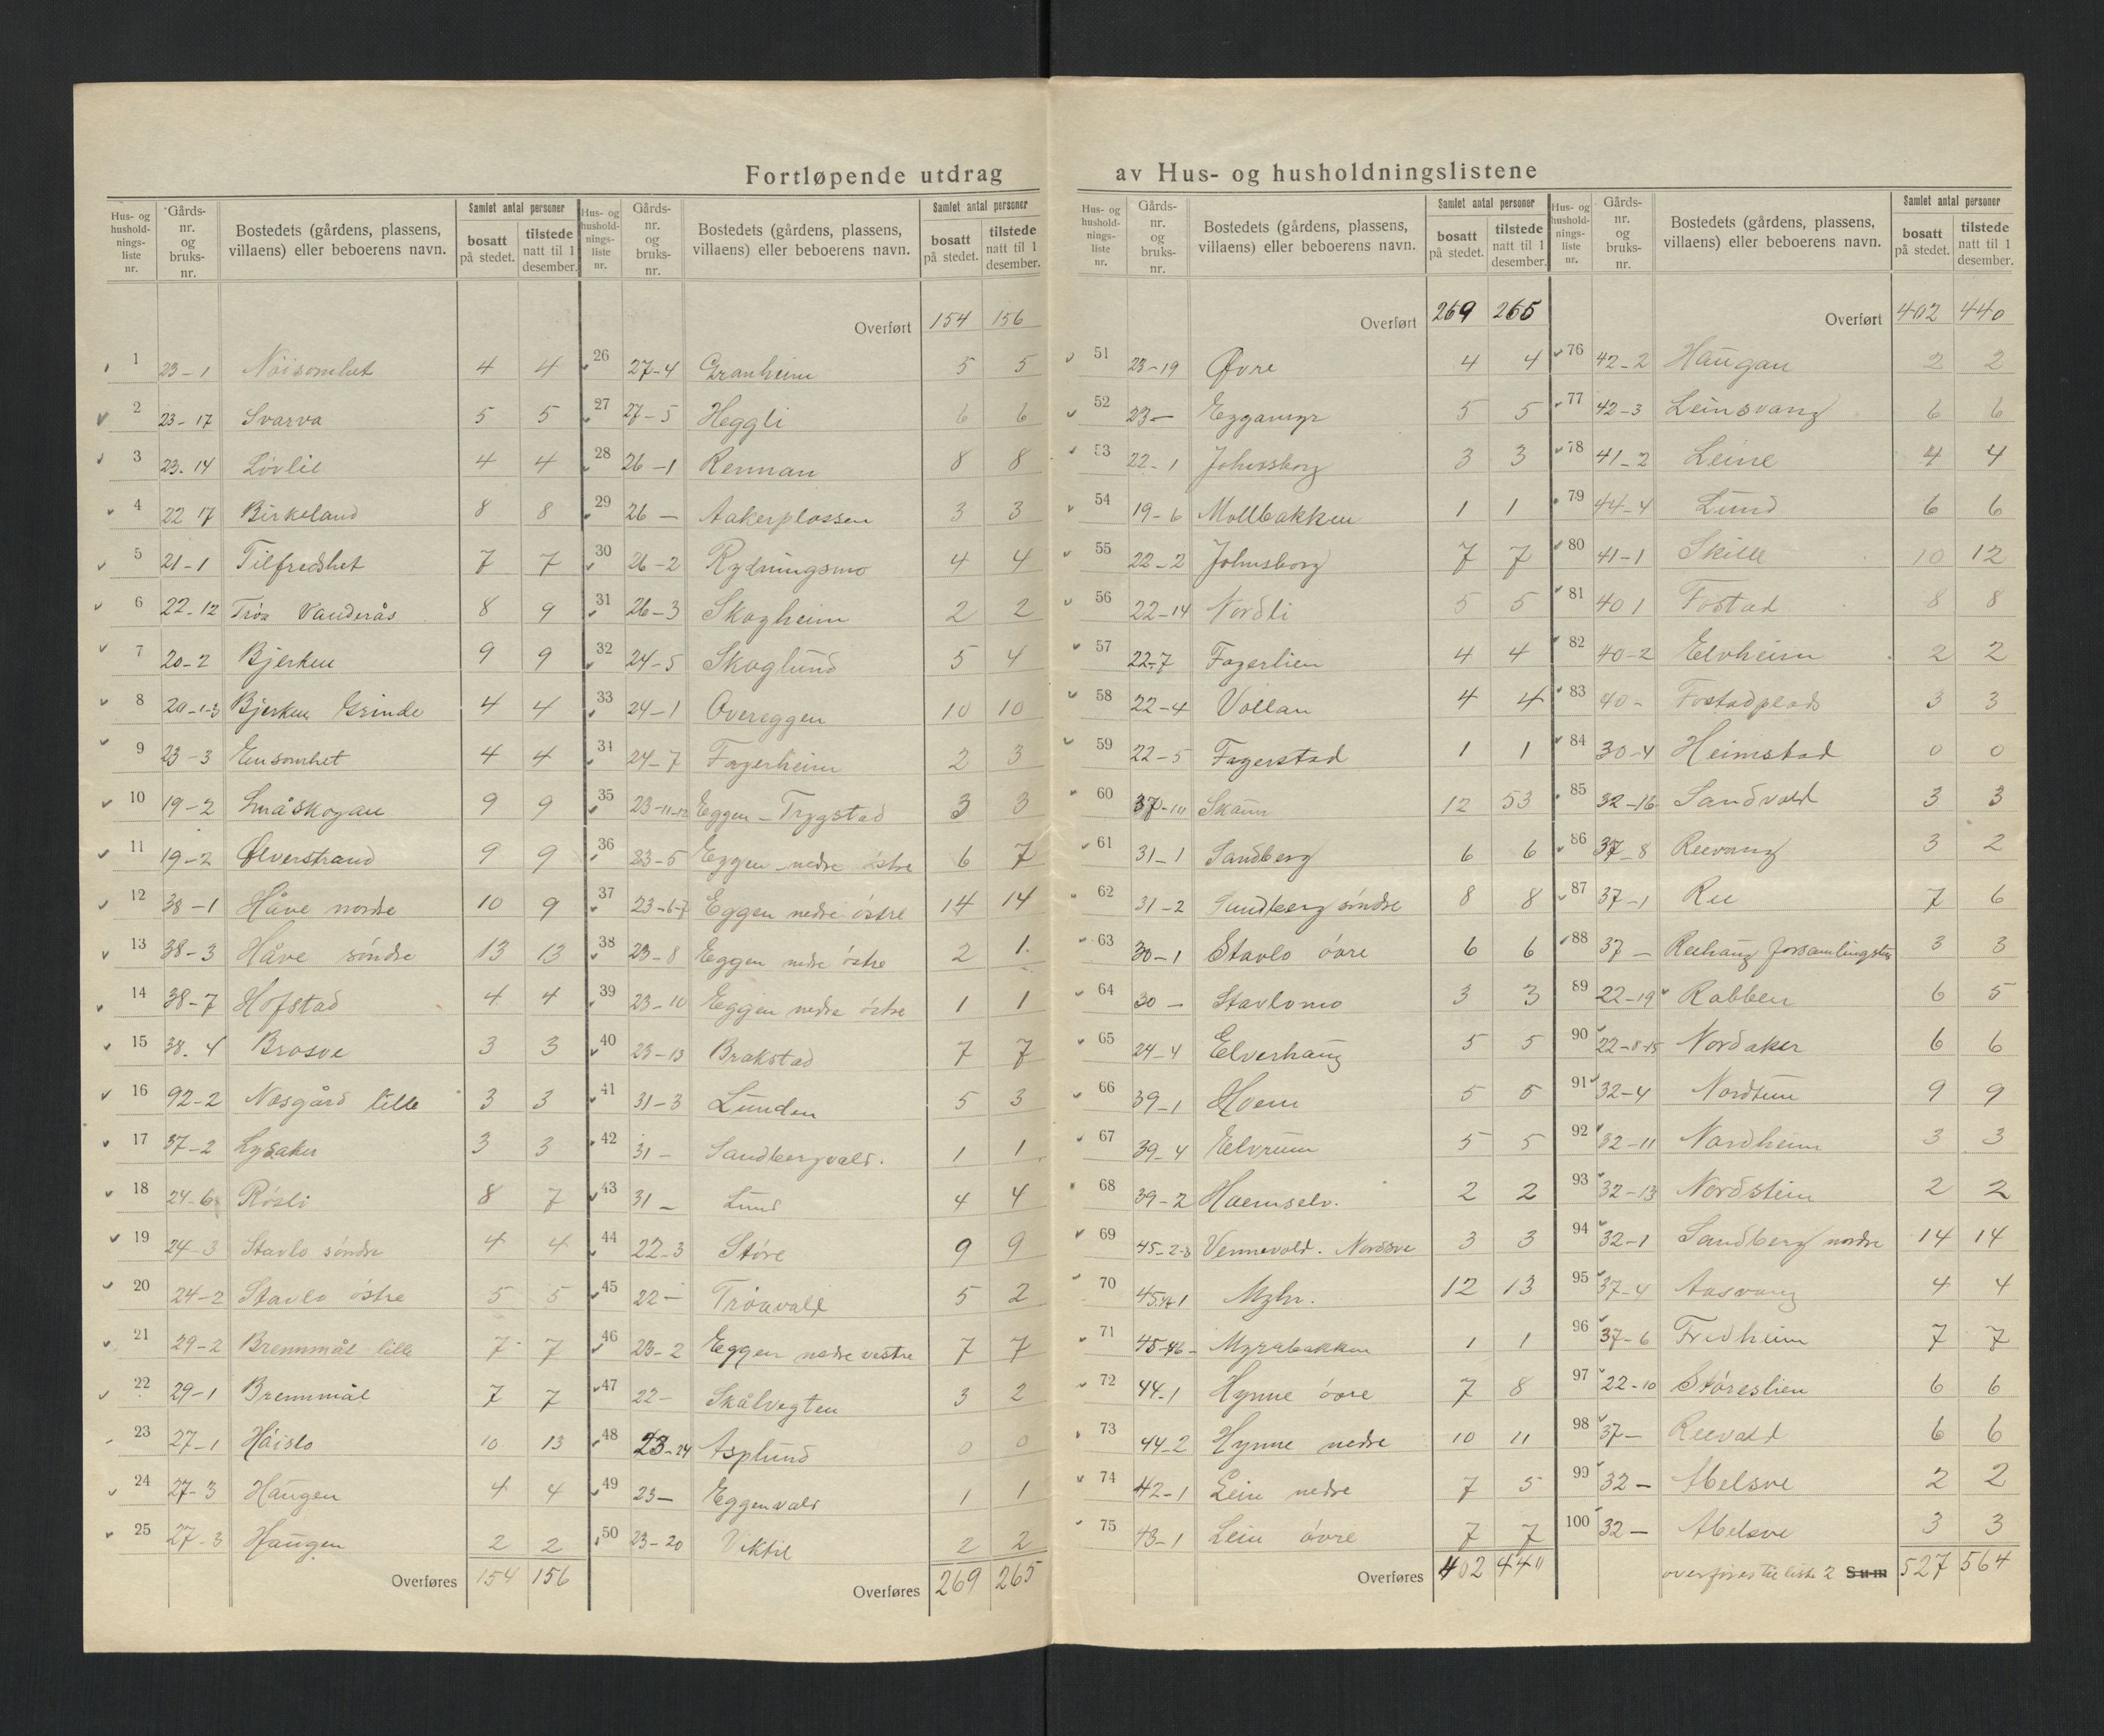 Fortløpende utdrag av Hus- og husholdningslistene
Hus- og hushold-nings-liste nr. | Gårds-nr. og bruks-nr. | Bostedets (gårdens, plassens, villaens) eller beboerens navn. | Samlet antal personer | bosatt på stedet. | tilstede natt til 1 desember.
1 23-1 Nöisomhet 4 4
2 23-17 Svarva 5 5
3 23.14 Lövlie 4 4
4 22 17 Birkeland 8 8
5 21-1 Tilfredshet 7 7
6 22-12 Tröa Vanderås 8 9
7 20-2 Bjerken 9 9
8 20-1-3 Bjerken Grinde 4 4
9 23-3 Ensomhet 4 4
10 19-2 Småskogan 9 9
11 19-2 Elverstrand 9 9
12 38-1 Håve nordre 10 9
13 38-3 Håve söndre 13 13
14 38-7 Hofstad 4 4
15 38.4 Brosve 3 3
16 92-2 Nesgård lille 3 3
17 37-2 Lysaker 3 3
18 24-6 Rösli 8 7
19 24-3 Stavlo söndre 4 4
20 24-2 Stavlo östre 5 5
21 29-2 Brennmål lille 7 7
22 29-1 Brennmål 7 7
23 27-1 Håislo 10 13
24 27-3 Haugen 4 4
25 27-3 Haugen 2 2
Overføres 154 156
Hus- og hushold-nings-liste nr. | Gårds-nr. og bruks-nr. | Bostedets (gårdens, plassens, villaens) eller beboerens navn. | Samlet antal personer | bosatt på stedet. | tilstede natt til 1 desember.
Overført 154 156
26 27-4 Granheim 5 5
27 27-5 Heggli 6 6
28 26-1 Renman 8 8
29 26 — Aakerplassen 3 3
30 26-2 Rydningsmo 4 4
31 26-3 Skogheim 2 2
32 24-5 Skoglund 5 4
33 24-1 Overeggen 10 10
34 24-7 Fagerheim 2 3
35 23-11-12 Eggen - Trygstad 3 3
36 23-5 Eggen nedre östre 6 7
37 23-6-7 Eggen nedre östre 14 14
38 23-8 Eggen nedre östre 2 1
39 23-10 Eggen nedre östre 1 1
40 23-13 Brakstad 7 7
41 31-3 Lunden 5 3
42 31- Sandbergvald. 1 1
43 31 - Lund 4 4
44 22-3 Störe 9 9
45 22- Tröavald 5 2
46 23-2 Eggen nedre vestre 7 7
47 22- Skålvegten 3 2
48 23-24 Asplund 0 0
49 23- Eggenvald 1 1
50 23-20 Viktil 2 2
Overføres 269 265
Hus- og hushold-nings-liste nr. | Gårds-nr. og bruks-nr. | Bostedets (gårdens, plassens, villaens) eller beboerens navn. | Samlet antal personer | bosatt på stedet. | tilstede natt til 1 desember.
Overført 269 265
51 23-19 Øvre 4 4
52 23- Eggamyr 5 5
53 22-1 Johnsborg 3 3
54 19-6 Mollbakken 1 1
55 22-2 Johnsborg 7 7
56 22-14 Nordli 5 5
57 22-7 Fagerlien 4 4
58 22-4 Vollan 4 4
59 22-5 Fagerstad 1 1
60 Skaun 12 53
61 31-1 Sandberg 6 6
62 31-2 Sandberg söndre 8 8
63 30-1 Stavlo övre 6 6
64 30 - Stavlomo 3 3
65 24-4 Elverhaug 5 5
66 39-1 Hoem 5 5
67 39-4 Elvrum 5 5
68 39-2 Hoemselv. 2 2
69 45-2-3 Vennevold. Nordsve 3 3
70 Myhr. 12 13
71 45-46- Myrabakken 1 1
72 44-1 Hynne övre 7 8
73 44-2 Hynne nedre 10 11
74 42-1 Lein nedre 7 5
75 43-1 Lein övre 7 7
Overføres 402 440
Hus- og hushold-nings-liste nr. | Gårds-nr. og bruks-nr. | Bostedets (gårdens, plassens, villaens) eller beboerens navn. | Samlet antal personer | bosatt på stedet. | tilstede natt til 1 desember.
Overført 402 440
76 42-2 Haugan 2 2
77 42-3 Leinsvang 6 6
78 41-2 Leine 4 4
79 44-4 Lund 6 6
80 41-1 Skille 10 12
81 40 1 Fostad 8 8
82 40-2 Elvheim 2 2
83 40- Fostadplads 3 3
84 30-4 Heimstad 0 0
85 32-16 Sandvald 3 3
86 37-8 Reevang 3 2
87 37-1 Ree 7 6
88 37 - Reehaug forsamlingshus 3 3
89 22-19 Rabben 6 5
90 22-8-15 Nordaker 6 6
91 32-4 Nordtun 9 9
92 32-11 Nordheim 3 3
93 32-13 Nordstein 2 2
94 32-1 Sandberg nordre 14 14
95 37-4 Aasvang 4 4
96 37-6 Fredheim 7 7
97 22-10 Støreslien 6 6
98 37- Reevald 6 6
99 32- Abelsve 2 2
100 32- Abelsve 3 3
overføres til liste 2 Sum 527 564